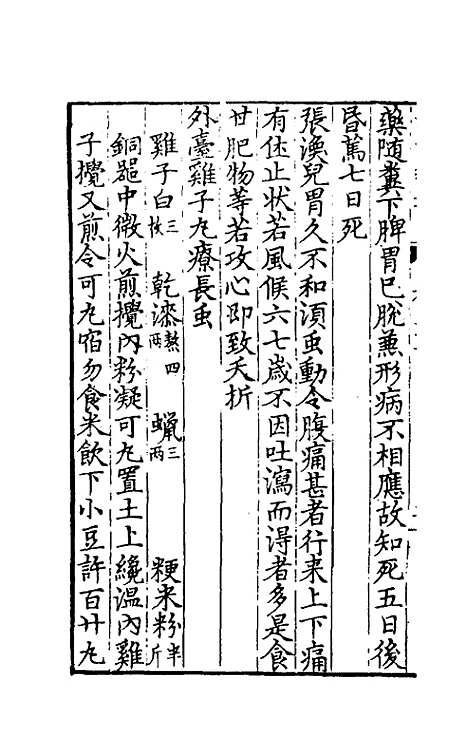 藥随糞下脾胃已脫兼形病不相應故知死五日後
昏篤七日死
張渙兒胃久不和湏䖝動令腹痛甚者行来上下痛
有休止状若風候六七歲不因吐瀉而得者多是食
甘肥物等若攻心即致夭折
外臺雞子丸療長䖝
雞子白三枚　乾漆熬四兩　蠟三兩　粳米粉半斤
銅器中微火煎攪內粉凝可丸置土上纔溫內雞
子攪又煎令可丸宿勿食米飲下小豆許百廿丸